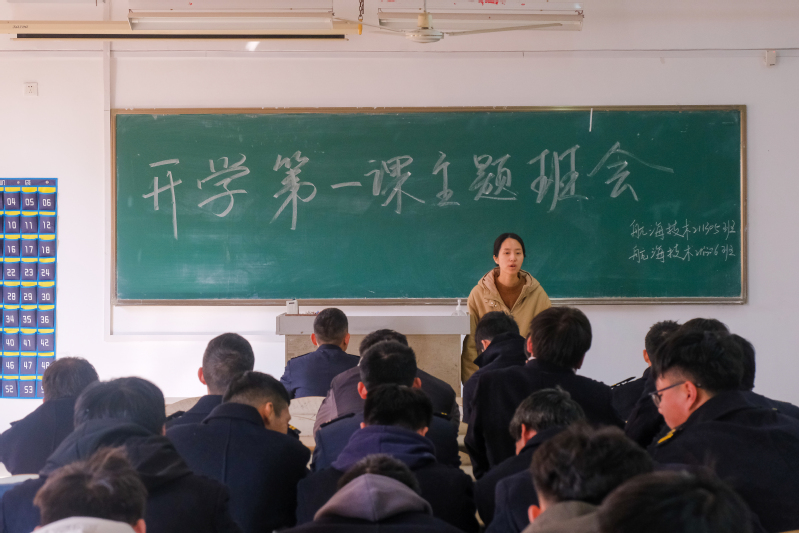 开学第一课主题班会
航海技术211505班
航海技术211506班
04 05 06
10 11 12
16 17 18
22 23 24
28 29 30
34 35 36
40 41 42
46 47 48
52 53 54